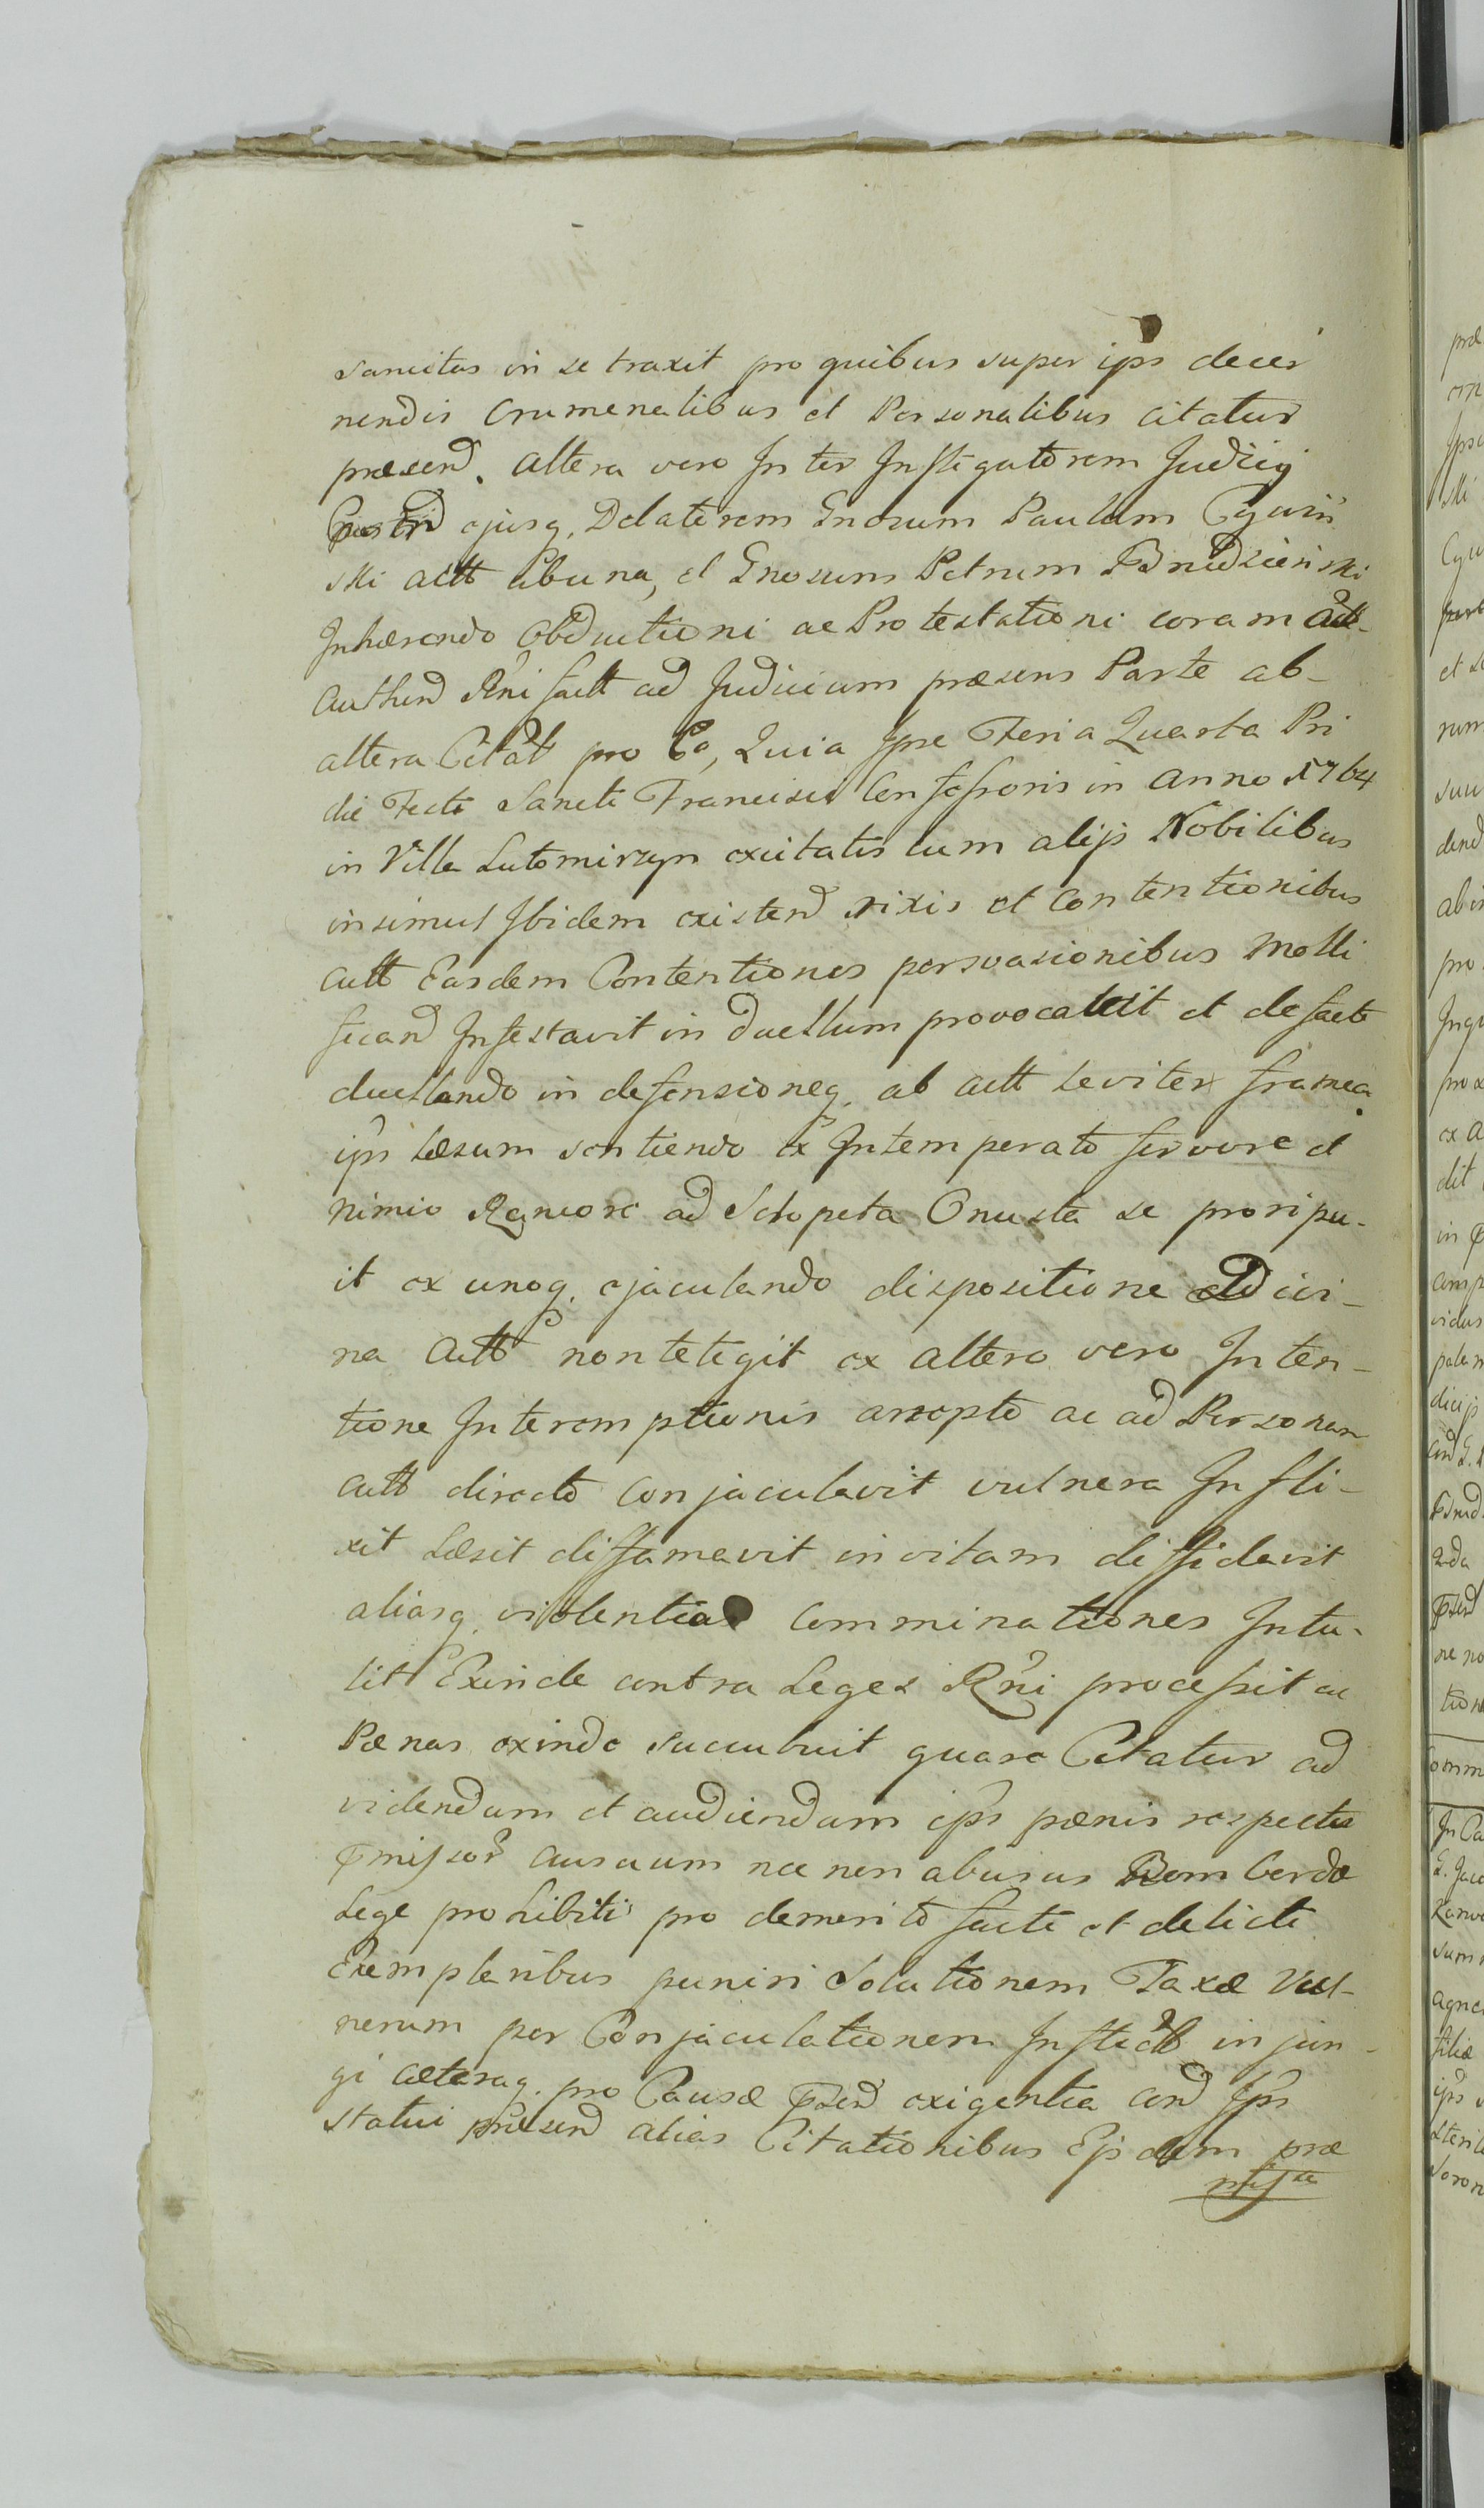 sancitas in se traxit pro quibus super ips decer
nendis crumenalibus et Personalibus citatur
præsend. altera vero Inter Instigatorem Judicij
ejusq. Delatorem Gnosum Paulum Cywiń
ski actt ab una, et Gnosum Petrum Brudzieński
Inhærendo Obductioni ac Protestationi coram Act-
authend Rñi factt ad Judicium præsens Parte ab-
altera Citatt pro Eo, Quia Ipse Feria Quarta Pri
die Festi Sancti Francisci Confessoris in anno 1764
in Villa Lutomirzyn excitatis cum alijs Nobilibus
insimul Ibidem existend rixis et Contentionibus
actt Easdem Contentiones persvasionibus Molli
ficand Infestavit in duellum provocavit et de facto
duellando in defensioneq. ab actt leviter framea
ips læsum sentiendo ex Intemperato fervore et
nimio Rancore ad Sclopeta Onusta se proripu-
it ex unoq. ejaculando dispositione Divi-
na Actt non tetegit ex altero vero Inten-
tione Interemptionis arrepto ac ad Personam
actt directo conjaculavit vulnera Infli-
xit Læsit diffamavit in vitam diffidavit
aliasq. violentias Comminationes Intu-
lit Exinde contra Leges Rñi processit ac
Pænas exinde succubuit quare Citatur ad
videndum et audiendum ips pænis respectu
pmissor ausuum nec non abusus Bombardæ
Lege prohibiti pro demerito facti et delicti
Exemplaribus puniri Solutionem Taxæ Vul-
nerum per Conjaculationem Inflictt injun-
gi cæteraq. pro Causæ psend exigentia cird Ips
statui præsend alias Citationibus Ejsdem præ
missa
præ
Ipsa
ski
et
ab in
pro
ex a
dit
in
vidus
palam
dicij
ne no
tion
Comm
In Ca
filiæ